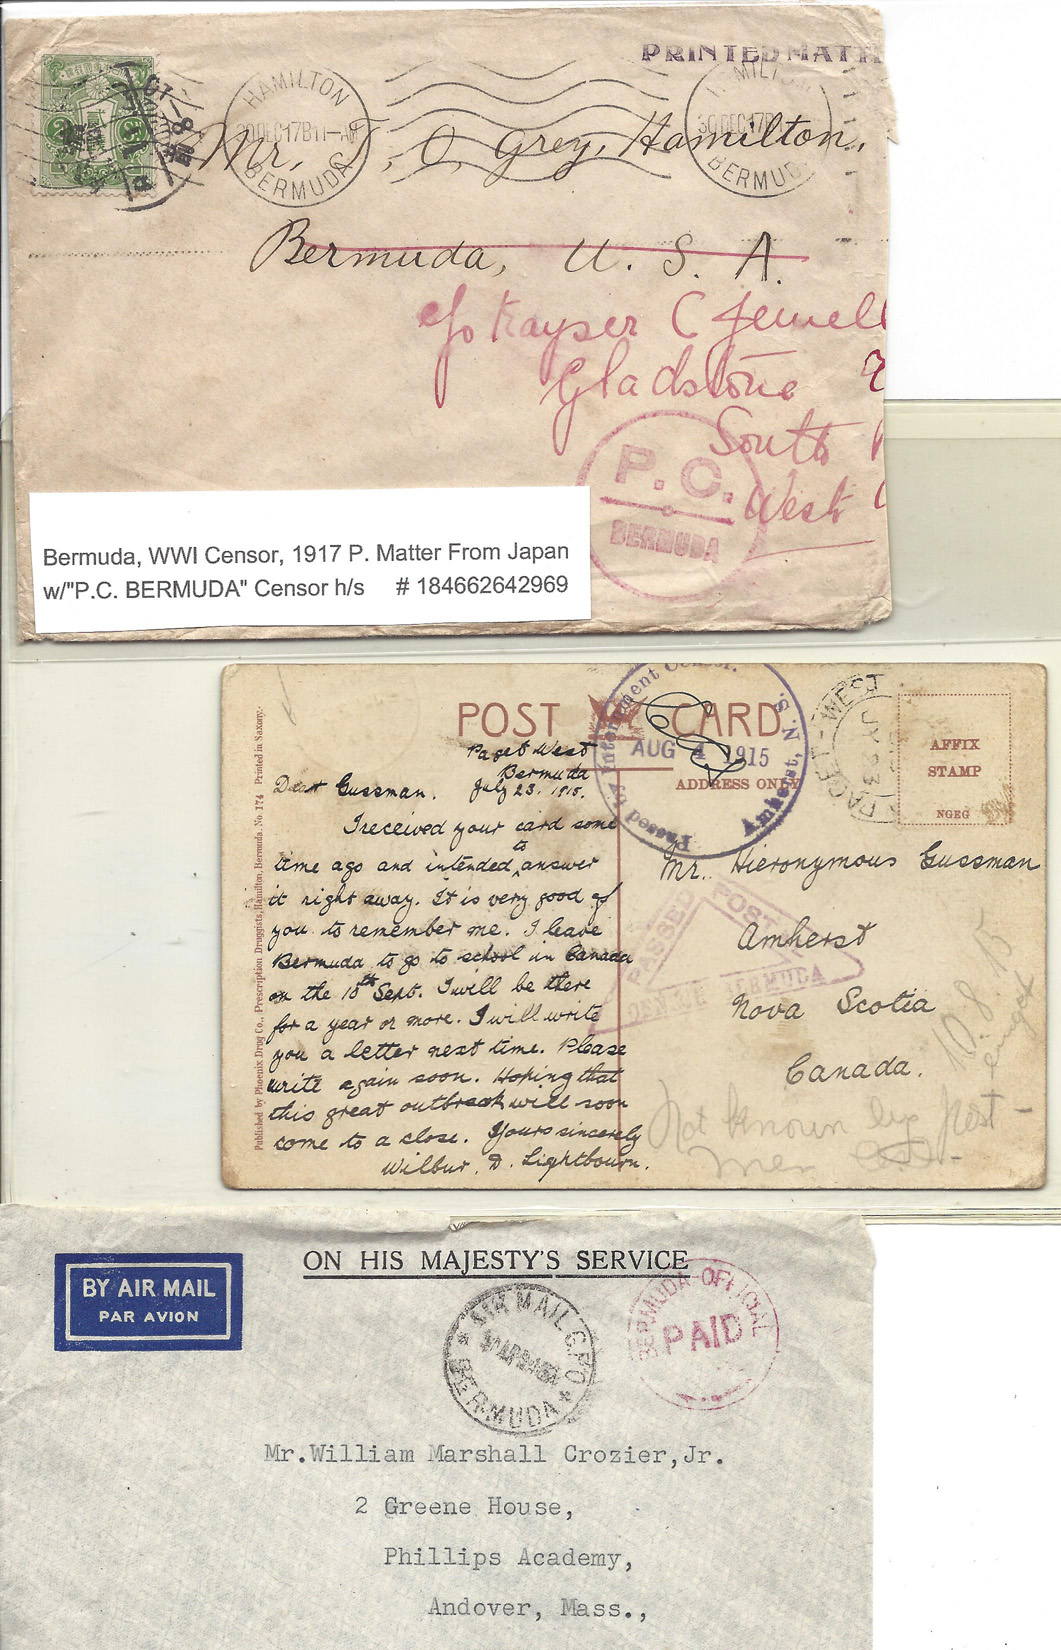 PRINTED MATT
HAMILTON
30 DEC 17 B 11-AM
BERMUDA
30 DEC 17 B
BERMUD
Mr. J, O, Grey, Hamilton,
Bermuda, U. S. A.
c/o Kayser C Jewell
Gladstone
South
West
P. C.
BERMUDA
Bermuda, WWI Censor, 1917 P. Matter From Japan
w/"P.C. BERMUDA" Censor h/s # 184662642969
Published by Phoenix Drug Co., Prescription Druggists, Hamilton, Bermuda. No 174 Printed in Saxony.
POST CARD
ADDRESS ONLY
Passed by Internment Censor.
Amherst, N. S.
AUG 4 1915
PAGET-WEST
JY 23
AFFIX
STAMP
NGEG
Paget West
Bermuda
July 23. 1915.
Dear Gussman.
I received your card some
time ago and intended to answer
it right away. It is very good of
you to remember me. I leave
Bermuda to go to school in Canada
on the 10th Sept. I will be there
for a year or more. I will write
you a letter next time. Please
write again soon. Hoping that
this great outbreak will soon
come to a close. Yours sincerely
Wilbur. D. Lightbourn.
Mr. Hieronymous Gussman
Amherst
Nova Scotia
Canada.
PASSED
POST
BERMUDA
10. 8. 15
Not known by post-
men
BY AIR MAIL
PAR AVION
ON HIS MAJESTY'S SERVICE
AIR MAIL G.P.O
BERMUDA
BERMUDA OFFICIAL
PAID
Mr.William Marshall Crozier,Jr.
2 Greene House,
Phillips Academy,
Andover, Mass.,